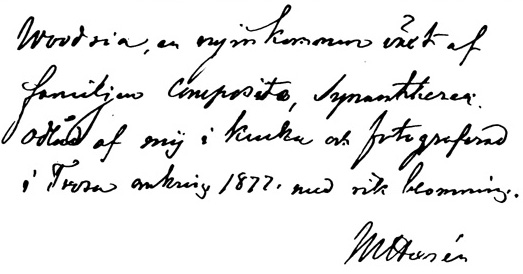 Woodsia, en nyinkommen växt af
familjen Compositæ, Synantherea.
Odlad af mig i kruka och fotograferad
i Trosa omkring 1877. med rik blomning.